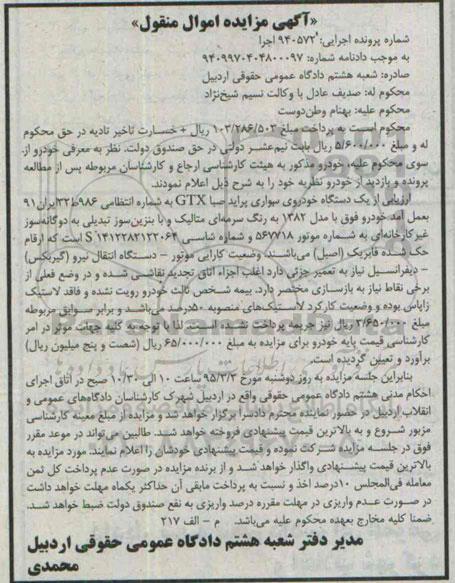 «آگهی مزایده اموال منقول»
شماره پرونده اجرایی: ۹۴۰۵۷۲ اجرا
به موجب دادنامه شماره: ۹۴۰۹۹۷۰۴۰۴۸۰۰۰۹۷
صادره: شعبه هشتم دادگاه عمومی حقوقی اردبیل
محکوم له: صدیف عادل با وکالت نسیم شیخ‌نژاد
محکوم علیه: بهنام وطن‌دوست
محکوم است به پرداخت مبلغ ۱۰۳/۲۸۶/۵۰۳ ریال + خسارت تاخیر تادیه در حق محکوم
له و مبلغ ۵/۶۰۰/۰۰۰ ریال بابت نیم‌عشر دولتی در حق صندوق دولت. نظر به معرفی خودرو از
سوی محکوم علیه، خودرو مذکور به هیئت کارشناسی ارجاع و کارشناسان مربوطه پس از مطالعه
پرونده و بازدید از خودرو نظریه خود را به شرح ذیل اعلام نمودند.
ارزیابی از یک دستگاه خودروی سواری پراید صبا GTX به شماره انتظامی ۹۸۶ط۳۲ایران۹۱
بعمل آمد خودرو فوق با مدل ۱۳۸۲ به رنگ سرمه‌ای متالیک و با بنزین‌سوز تبدیلی به دوگانه‌سوز
غیرکارخانه‌ای به شماره موتور ۵۶۷۷۱۸ و شماره شاسی S۱۴۱۲۲۸۲۱۲۲۰۶۴ است که ارقام
حک شده فابریک (اصیل) می‌باشند، وضعیت کارایی موتور - دستگاه انتقال نیرو (گیربکس)
- دیفرانسیل نیاز به تعمیر جزئی دارد اغلب اجزاء اتاق تجدید نقاشی شده و در وضع فعلی از
برخی نقاط نیاز به بازسازی مختصر دارد. بیمه شخص ثالث خودرو رویت نشده و فاقد لاستیک
زاپاس بوده و وضعیت کارکرد لاستیک‌های منصوبه ۵۰درصد می‌باشد و برابر سوابق مربوطه
مبلغ ۳/۶۵۰/۰۰۰ ریال نیز جریمه پرداخت نشده است. لذا با توجه به کلیه جهات موثر در امر
کارشناسی قیمت پایه خودرو برای مزایده به مبلغ ۶۵/۰۰۰/۰۰۰ ریال (شصت و پنج میلیون ریال)
برآورد و تعیین گردیده است.
بنابراین جلسه مزایده به روز دوشنبه مورخ ۹۵/۳/۳ ساعت ۱۰ الی ۱۰/۳۰ صبح در اتاق اجرای
احکام مدنی هشتم دادگاه عمومی حقوقی واقع در اردبیل شهرک کارشناسان دادگاه‌های عمومی و
انقلاب اردبیل با حضور نماینده محترم دادسرا برگزار خواهد شد و مزایده از مبلغ معینه کارشناسی
مزبور شروع و به بالاترین قیمت پیشنهادی فروخته خواهد شد. طالبین می‌تواند در موعد مقرر
فوق در جلسه مزایده شرکت نموده و قیمت پیشنهادی خودشان را اعلام نمایند. مورد مزایده به
بالاترین قیمت پیشنهادی واگذار خواهد شد و از برنده مزایده در صورت عدم پرداخت کل ثمن
معامله فی‌المجلس ۱۰درصد اخذ و نسبت به پرداخت مابقی آن حداکثر یکماه مهلت خواهد داشت
در صورت عدم واریزی در مهلت مقرره درصد واریزی به نفع صندوق دولت ضبط خواهد شد.
ضمنا کلیه مخارج بعهده محکوم علیه می‌باشد. م - الف ۲۱۷
مدیر دفتر شعبه هشتم دادگاه عمومی حقوقی اردبیل
محمدی